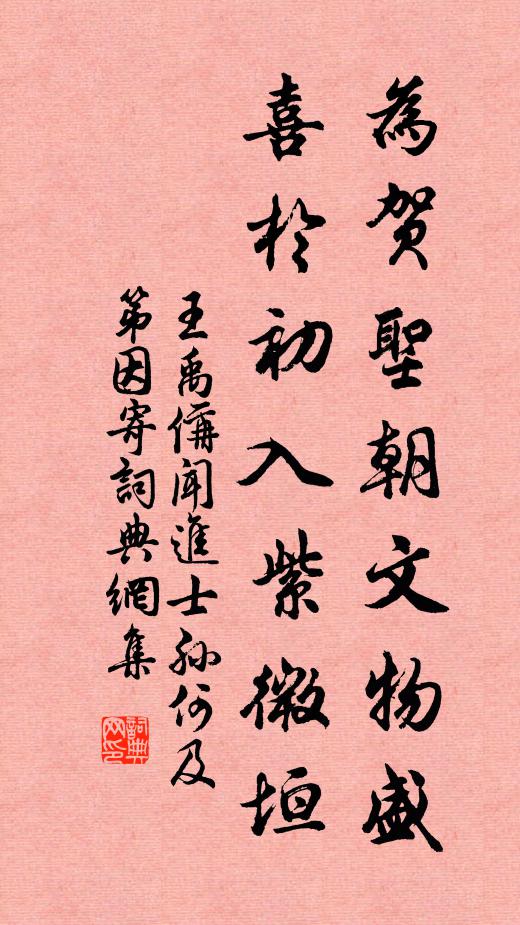 為賀聖朝文物盛
喜於初入紫微垣
王禹偁聞進士孙何及
第因寄詞典網集
詞典
网印